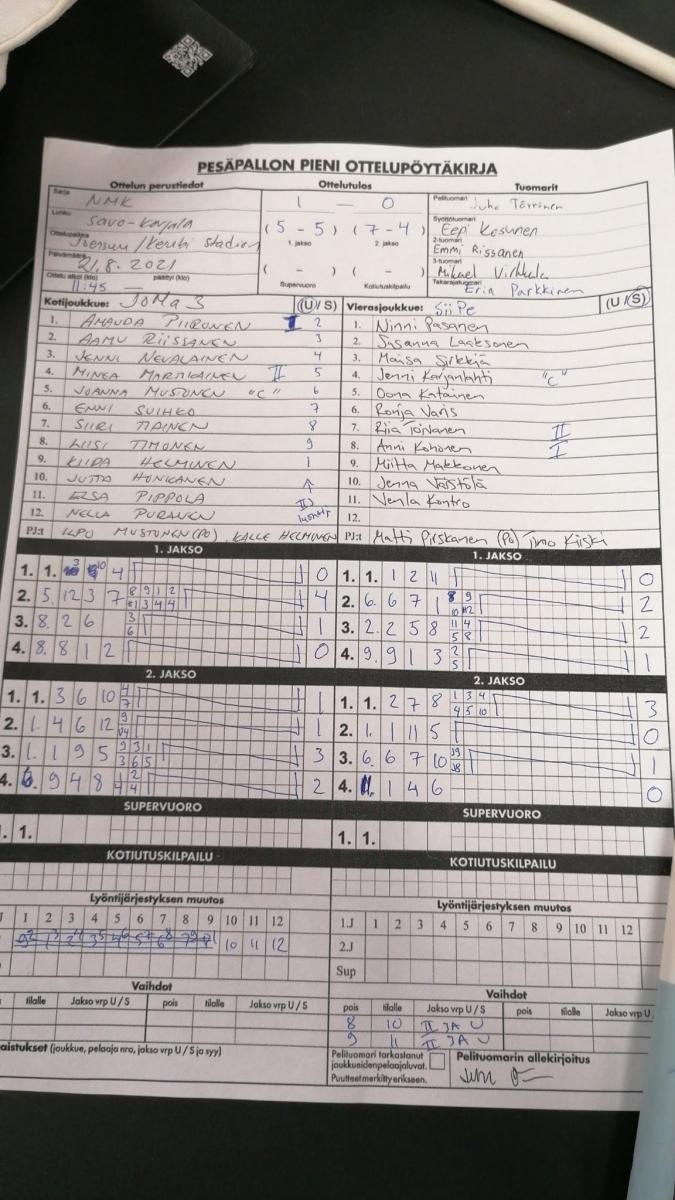 PESÄPALLON PIENI OTTELUPÖYTÄKIRJA
Ottelun perustiedot Ottelutulos Tuomarit
Sarja NMK 1 — 0 Pelituomari Juho Törrönen
Lohko Savo-Karjala (5 - 5) (7 - 4) Syöttötuomari Eepi Kosunen
1. jakso 2. jakso
Ottelupaikka Joensuu / Kerubi Stadion 2-tuomari Emmi Rissanen
Päivämäärä 21.8.2021 ( - ) ( - ) 3-tuomari Mikael Virkkula
Ottelu alkoi (klo) 11:45 päättyi (klo) — Supervuoro Kotiutuskilpailu Takarajatuomari Erin Parkkinen
Kotijoukkue: JoMa 3 (U/S) Vierasjoukkue: SiiPe (U/S)
1. AMANDA PIIRONEN I 2 1. Ninni Pasanen
2. AAMU RIISSANEN 3 2. Susanna Laaksonen
3. JENNI NEVALAINEN 4 3. Maisa Sirkkiä
4. MINEA MARTIKAINEN II 5 4. Jenni Karjanlahti "C"
5. JOANNA MUSTONEN "C" 6 5. Oona Katainen
6. ENNI SUIHKO 7 6. Ronja Varis
7. SIIRI TIAINEN 8 7. Riia Toivanen II
8. LIISI TIMONEN 9 8. Anni Kohonen I
9. KIIRA HELMINEN 1 9. Miitta Makkonen
10. JUTTA HONKANEN 10. Jenna Väistölä
11. ELSA PIPPOLA 11. Venla Kontro
12. NELLA PURANEN 12.
PJ:t ILPO MUSTONEN (PO), KALLE HELMINEN PJ:t Matti Pirskanen (Po) Timo Kiiski
1. JAKSO 1. JAKSO
1. 1. 4 0 1. 1. 1 2 11 0
2. 5. 12 3 7 8 9 1 2 4 2. 6. 6 7 1 2
1 3 4 4
3. 8. 2 6 3 6 1 3. 2. 2 5 8 11 4 5 8 2
4. 8. 8 1 2 0 4. 9. 9 1 3 2 5 1
2. JAKSO 2. JAKSO
1. 1. 3 6 10 4 7 1 1. 1. 2 7 8 1 3 4 3
4 5 10
2. 1. 4 6 12 1 2. 1. 1 11 5 0
3. 1. 1 9 5 9 3 1 3 3. 6. 6 7 10 1
3 6 5
4. 6. 9 4 8 2 4. 11. 1 4 6 0
SUPERVUORO SUPERVUORO
1. 1. 1. 1.
KOTIUTUSKILPAILU KOTIUTUSKILPAILU
Lyöntijärjestyksen muutos Lyöntijärjestyksen muutos
1 2 3 4 5 6 7 8 9 10 11 12 1.J 1 2 3 4 5 6 7 8 9 10 11 12
10 11 12 2.J
Sup
Vaihdot Vaihdot
tilalle Jakso vrp U / S pois tilalle Jakso vrp U / S pois tilalle Jakso vrp U / S pois tilalle Jakso vrp U
8 10 II JA U
9 11 II JA U
(joukkue, pelaaja nro, jakso vrp U / S ja syy) Pelituomari tarkastanut joukkueidenpelaajaluvat. Pelituomarin allekirjoitus
Puutteet merkitty erikseen.